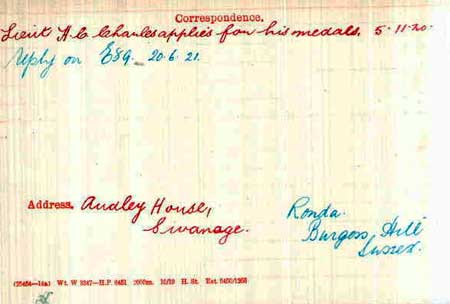 Correspondence.
Lieut H. C Charles applies for his medals. 5.11.20.
Reply on E89. 20.6.21.
Address. Audley House,
Swanage.
Ronda.
Burgess Hill
Sussex.
(25454—14a) Wt. W 3347—H.P. 6451 2000m. 10/19 H. St. Est 5400/1368